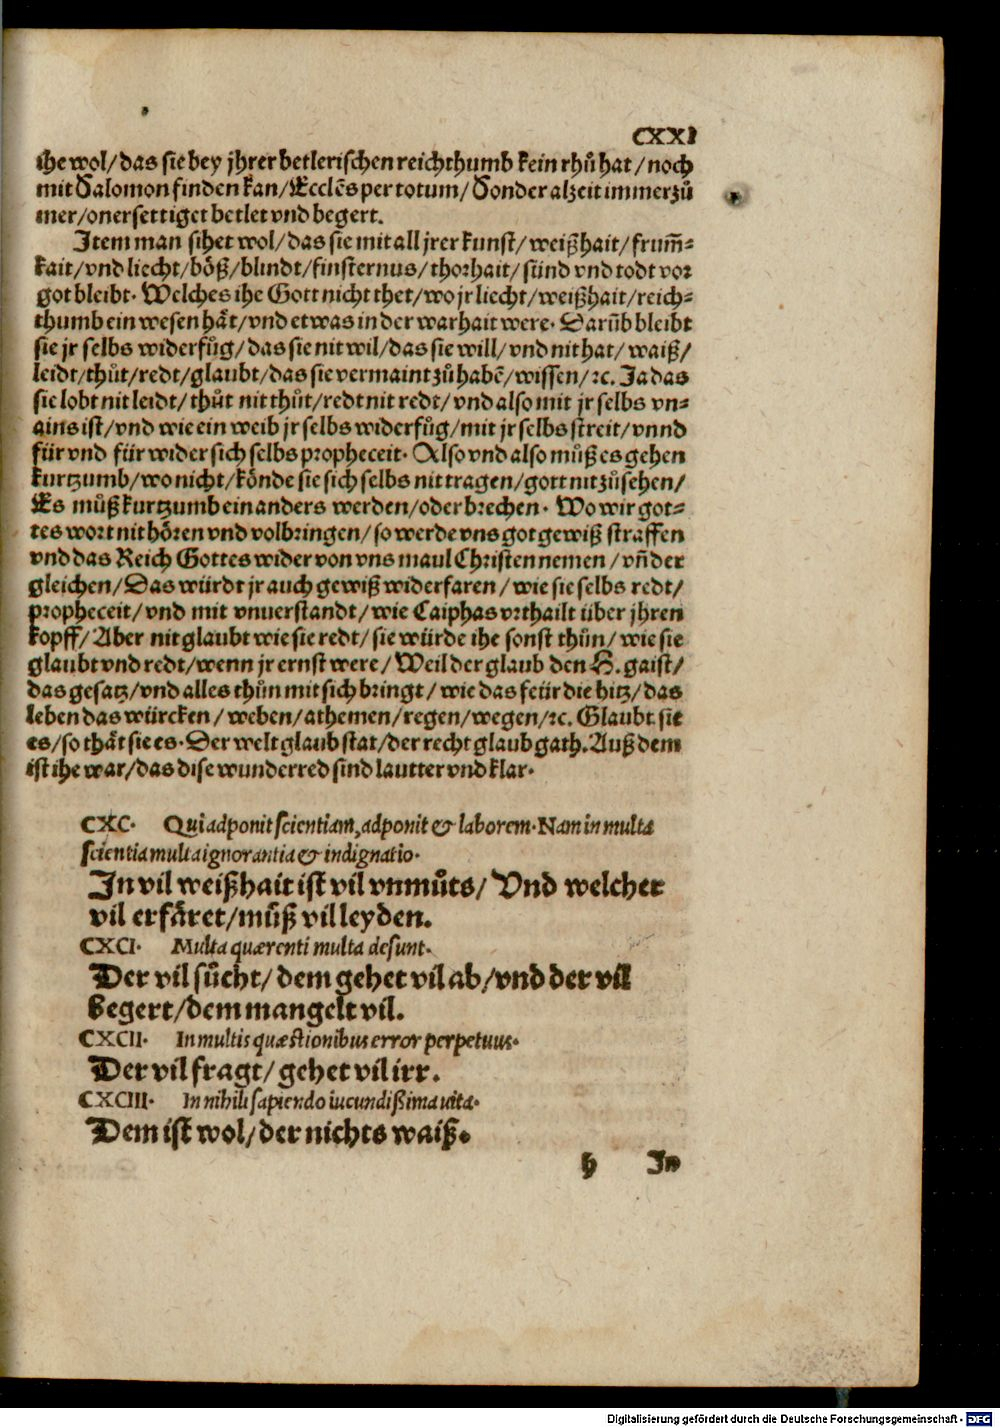 CXXI
ihe wol/das sie bey jhrer betlerischen reichthumb kein rhů hat/noch
mit Salomon finden kan/Ecclēs per totum/Sonder alzeit immerzů
mer/onersettiget betlet vnd begert.
Item man sihet wol/das sie mit all jrer kunst/weißhait/frum̄=
kait/vnd liecht/böß/blindt/finsternus/thorhait/sünd vnd todt vor
got bleibt. Welches ihe Gott nicht thet/wo jr liecht/weißhait/reich=
thumb ein wesen hät/vnd etwas in der warhait were. Darūb bleibt
sie jr selbs widerfůg/das sie nit wil/das sie will/vnd nit hat/waiß/
leidt/thůt/redt/glaubt/das sie vermaint zů habē/wissen/ꝛc. Ja das
sie lobt nit leidt/thůt nit thůt/redt nit redt/vnd also mit jr selbs vn=
ains ist/vnd wie ein weib jr selbs widerfůg/mit jr selbs streit/vnnd
für vnd für wider sich selbs propheceit. Also vnd also můß es gehen
kurtzumb/wo nicht/könde sie sich selbs nit tragen/gott nit zůsehen/
Es můß kurtzumb ein anders werden/oder brechen. Wo wir got=
tes wort nit hören vnd volbringen/so werde vns got gewiß straffen
vnd das Reich Gottes wider von vns maul Christen nemen/vn̄ der
gleichen/Das würdt jr auch gewiß widerfaren/wie sie selbs redt/
propheceit/vnd mit vnuerstandt/wie Caiphas vrthailt über jhren
kopff/Aber nit glaubt wie sie redt/sie würde ihe sonst thůn/wie sie
glaubt vnd redt/wenn jr ernst were/Weil der glaub den H. gaist/
das gesatz/vnd alles thůn mit sich bringt/wie das feür die hitz/das
leben das würcken/weben/athemen/regen/wegen/ꝛc. Glaubt sie
es/so thät sie es. Der welt glaub stat/der recht glaub gath. Auß dem
ist ihe war/das dise wunderred sind lautter vnd klar.
CXC. Qui adponit scientiam, adponit & laborem. Nam in multa
scientia multa ignorantia & indignatio.
In vil weißhait ist vil vnmůts/Vnd welcher
vil erfäret/můß vil leyden.
CXCI. Multa quærenti multa desunt.
Der vil sůcht/dem gehet vil ab/vnd der vil
begert/dem mangelt vil.
CXCII. In multis quæstionibus error perpetuus.
Der vil fragt/gehet vil irr.
CXCIII. In nihil sapiendo iucundißima uita.
Dem ist wol/der nichts waiß.
h In
Digitalisierung gefördert durch die Deutsche Forschungsgemeinschaft - DFG